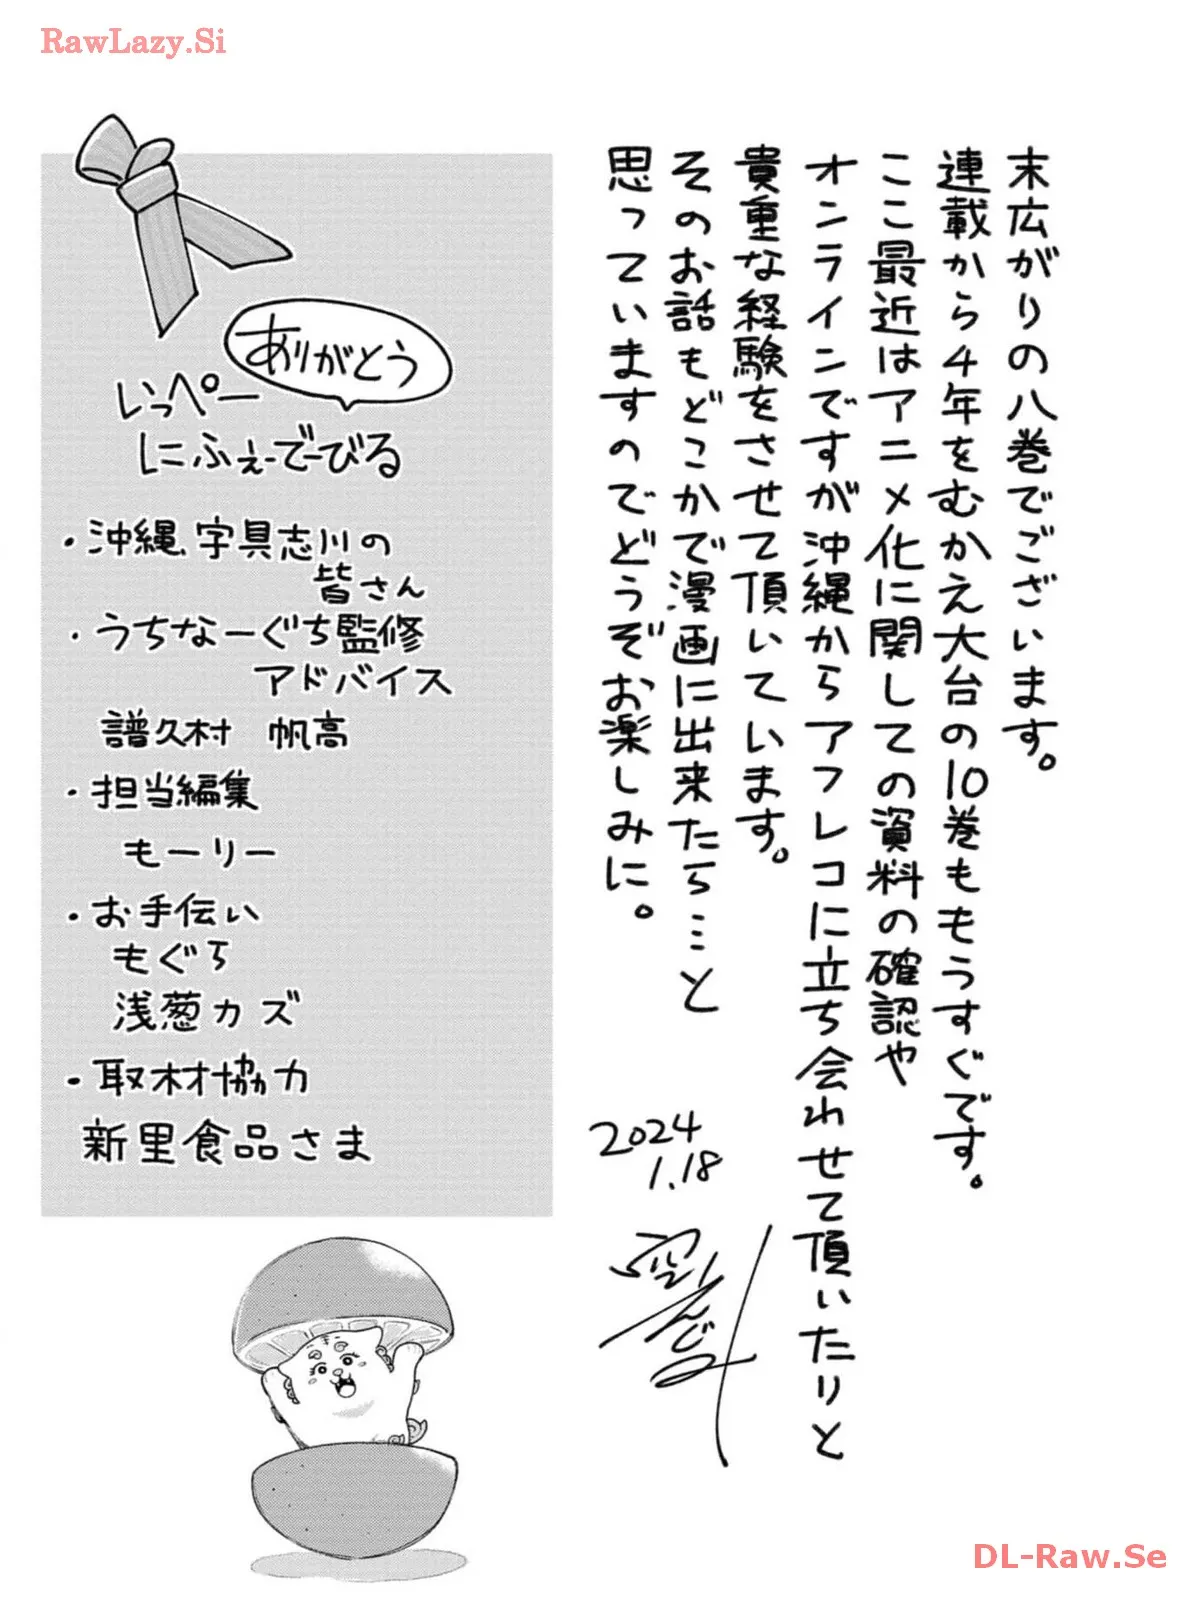 RawLazy.Si
末広がりの八巻でございます。
連載から4年をむかえ大台の10巻ももうすぐです。
ここ最近はアニメ化に関しての資料の確認や
オンラインですが沖縄からアフレコに立ち会わせて頂いたりと
貴重な経験をさせて頂いています。
そのお話もどこかで漫画に出来たら…と
思っていますのでどうぞお楽しみに。
2024
1.18
ありがとう
いっぺー
にふぇーでーびる
・沖縄、宇具志川の
皆さん
・うちなーぐち監修
アドバイス
譜久村 帆高
・担当編集
もーりー
・お手伝い
もぐろ
浅葱カズ
・取材協力
新里食品さま
DL-Raw.Se